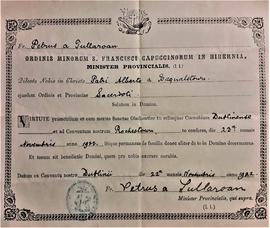 Fr. Petrus a Tullaroan
ORDINIS MINORUM S. FRANCISCI CAPUCCINORUM IN HIBERNIA,
MINISTER PROVINCIALIS, (l. i.)
Dilecto Nobis in Christo Patri Alberto a
ejusdem Ordinis et Provinciae Sacerdoti
Salutem in Domino.
VIRTUTE praesentium et cum merito Sanctae Obedientiae te relinquas Conventum Dubliniensem
et ad Conventum nostrum Rochestown, te conferas, die 23a mensis
Novembris anno 1902, ibique permaneas de familia donec aliter de te in Domino decernamus.
Et nosmi sit benedictio Domini, quem pro nobis exorare curabis.
Datum ex Conventu nostro Dublinii die 22a mensis Novembris anno 1902
Fr. Petrus a Tullaroan
Minister Provincialis, qui supra.
(l. i.)